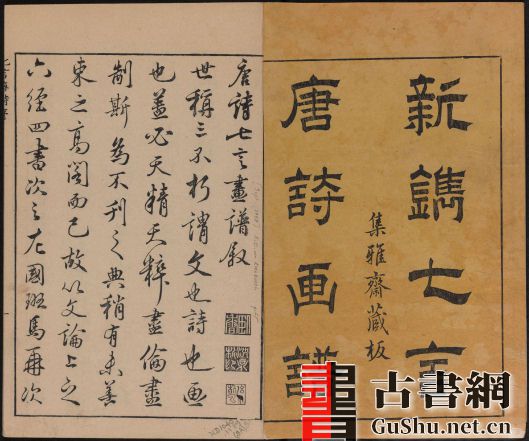 新鐫七言
集雅齋藏板
唐詩画譜
唐詩七言畫譜敘
世稱三不朽謂文也詩也画
也蓋必天精天粹盡倫盡
制斯為不刊之典稍有未善
束之高閣而已故以文論上之
六經四書次之左國班馬再次
古書網
GuShu.net.cn